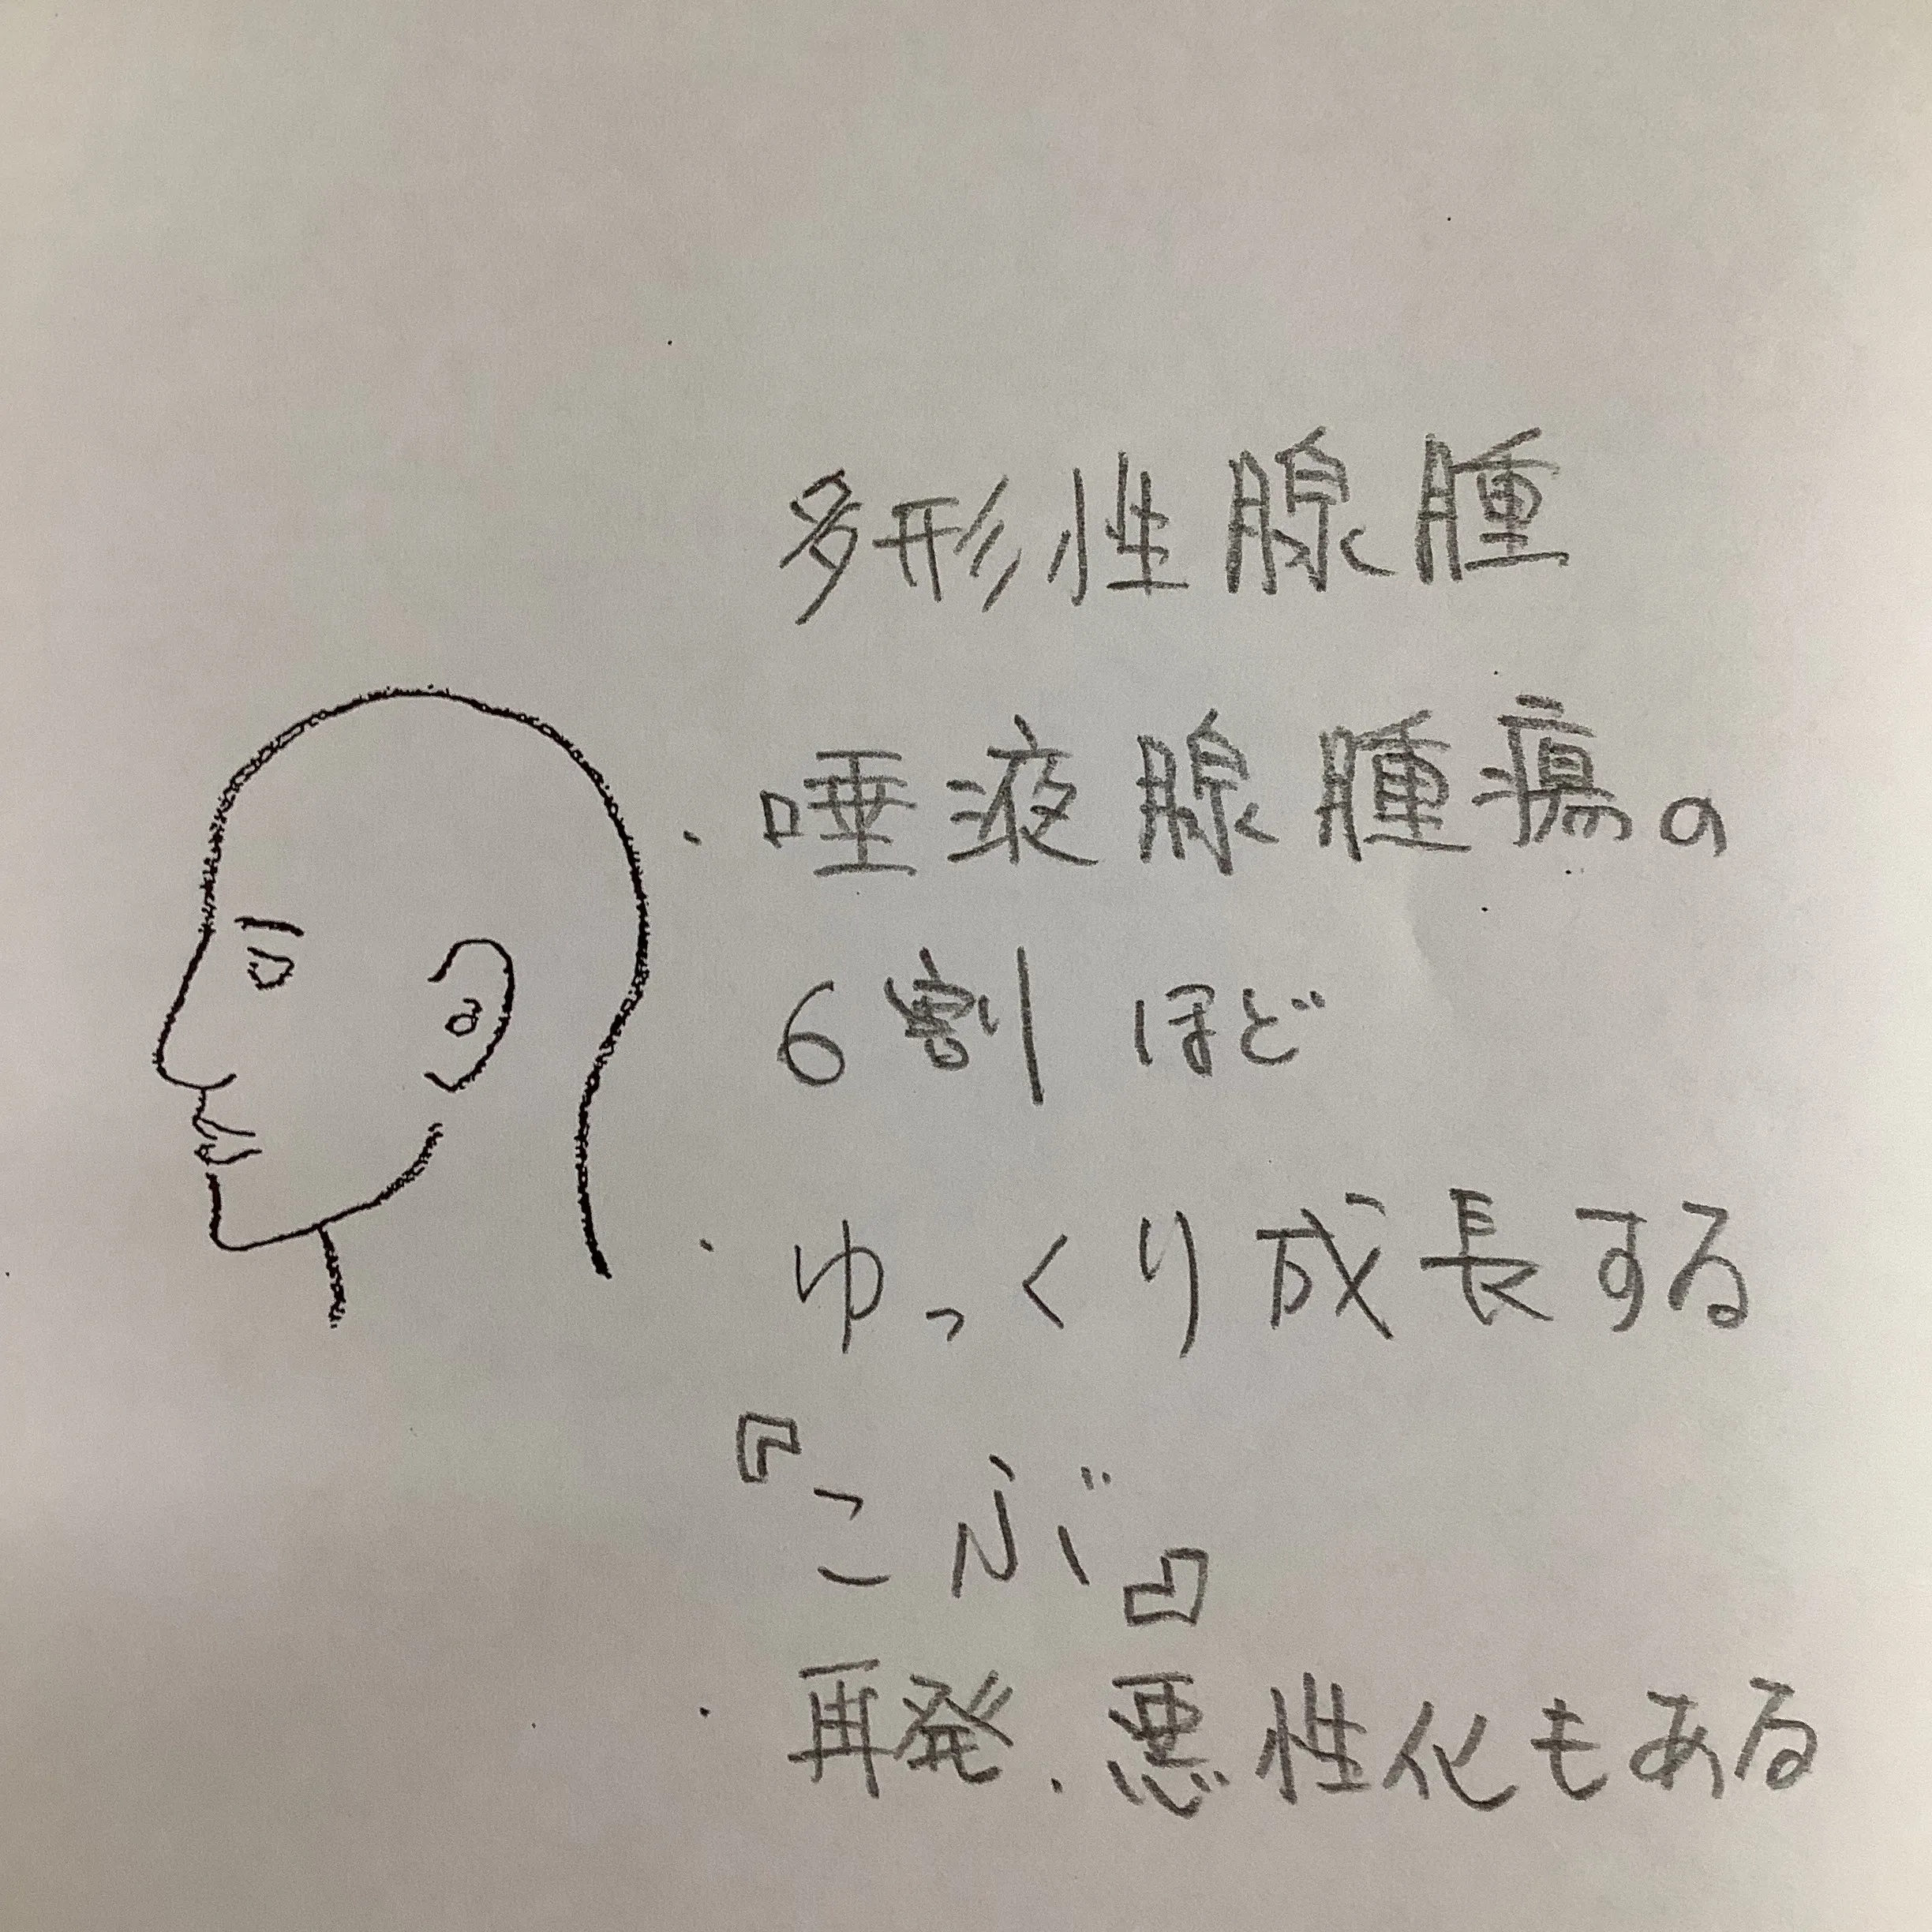 多形性腺腫
・唾液腺腫瘍の
6割ほど
・ゆっくり成長する
『こぶ』
・再発、悪性化もある